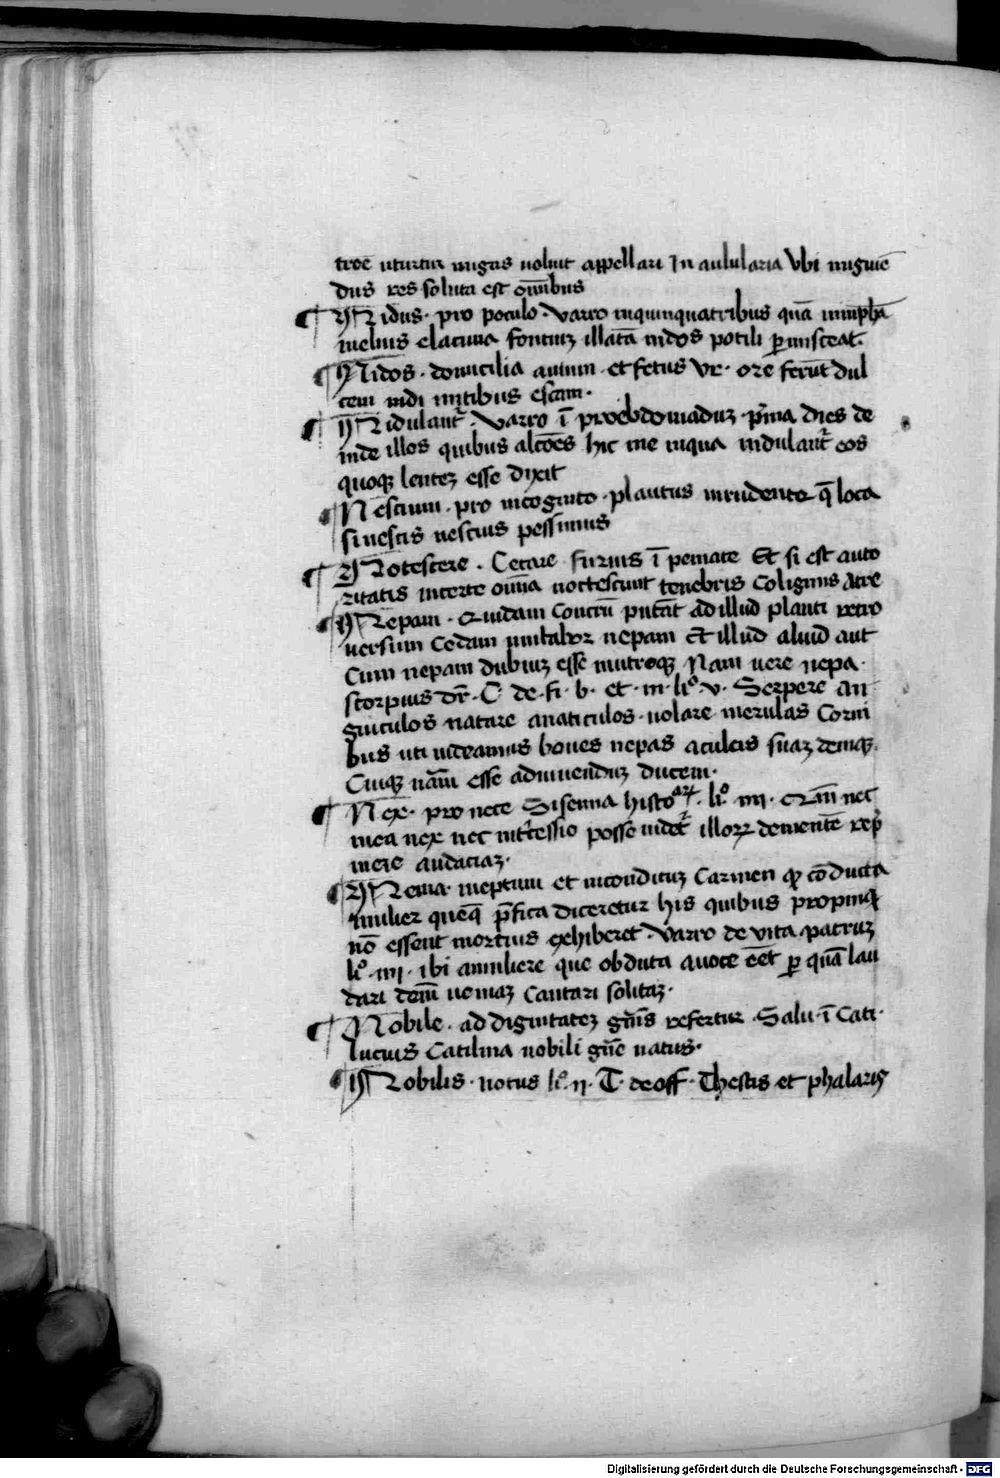 troē utuntur nugas uoluit appellari In aulularia Vbi nugiuē
dus res soluta est oīnibus
¶ Nidus · pro poculo · Varro inquinquatribus quā nimphā
melius elacuna fontiuȝ illatā nidos potili ꝑmisceat.
¶ Nidos · domicilia auium · et fetus Vr · ore ferūt dul
cem nidi mitibus escam ·
¶ Nidulant᷑ · Varro ī proebdomaduȝ · p̄ma dies de
inde illos quibus alcōes hic me inqua nidulant᷑ eos
quoqꝫ lenteȝ esse dixit
¶ Nescium · pro incognito · plautus inrudente q̄ loca
si nescis nescius pessimus
¶ Notescere · Cerare furius ī pemate Et si est auto
ritatis incerte oīnia noctescunt tenebris coliginis atre
¶ Nepam · Quidam Concrū putāt ad illud plauti retro
uersum cedam imitabor nepam Et illud aluid aut
Cum nepam dubiuȝ esse inutroqꝫ Nam uere nepa ·
scorpius dr̄ · C · de · fi · b · et · m · li° · v · Serpere an
guiculos natare anaticulos · uolare merulas Corni
bus uti uideamus boues nepas aculeis suaȝ deniqꝫ
Cuiqꝫ nām esse aduiuenduȝ ducem ·
¶ Nex · pro nece Sisenna histoaꝝ · li° · iiii · Qm̄ nec
mea nex nec int᷑cessio posse uidet᷑ illoꝝ dementē rep̄
mere audaciaȝ ·
¶ Nenia ineptum et incondituȝ Carmen qd̄ cōducta
mulier queq̄ p̄fica diceretur his quibus propinqꝫ
nō essent mortuis exhiberet · Varro de vita patruȝ
li° · iiii · ibi amuliere que obduta auoce eēt ꝑ quā lau
dari dem̄ nemaȝ Cantari solitaȝ ·
¶ Nobile · ad dignitateȝ gn̄is refertur · Salu · ī Cati ·
lucius Catilina nobili gn̄e natus ·
¶ Nobilis · notus li° · ii · T · deoff · Thestis et phalaris
Digitalisierung gefördert durch die Deutsche Forschungsgemeinschaft - DFG